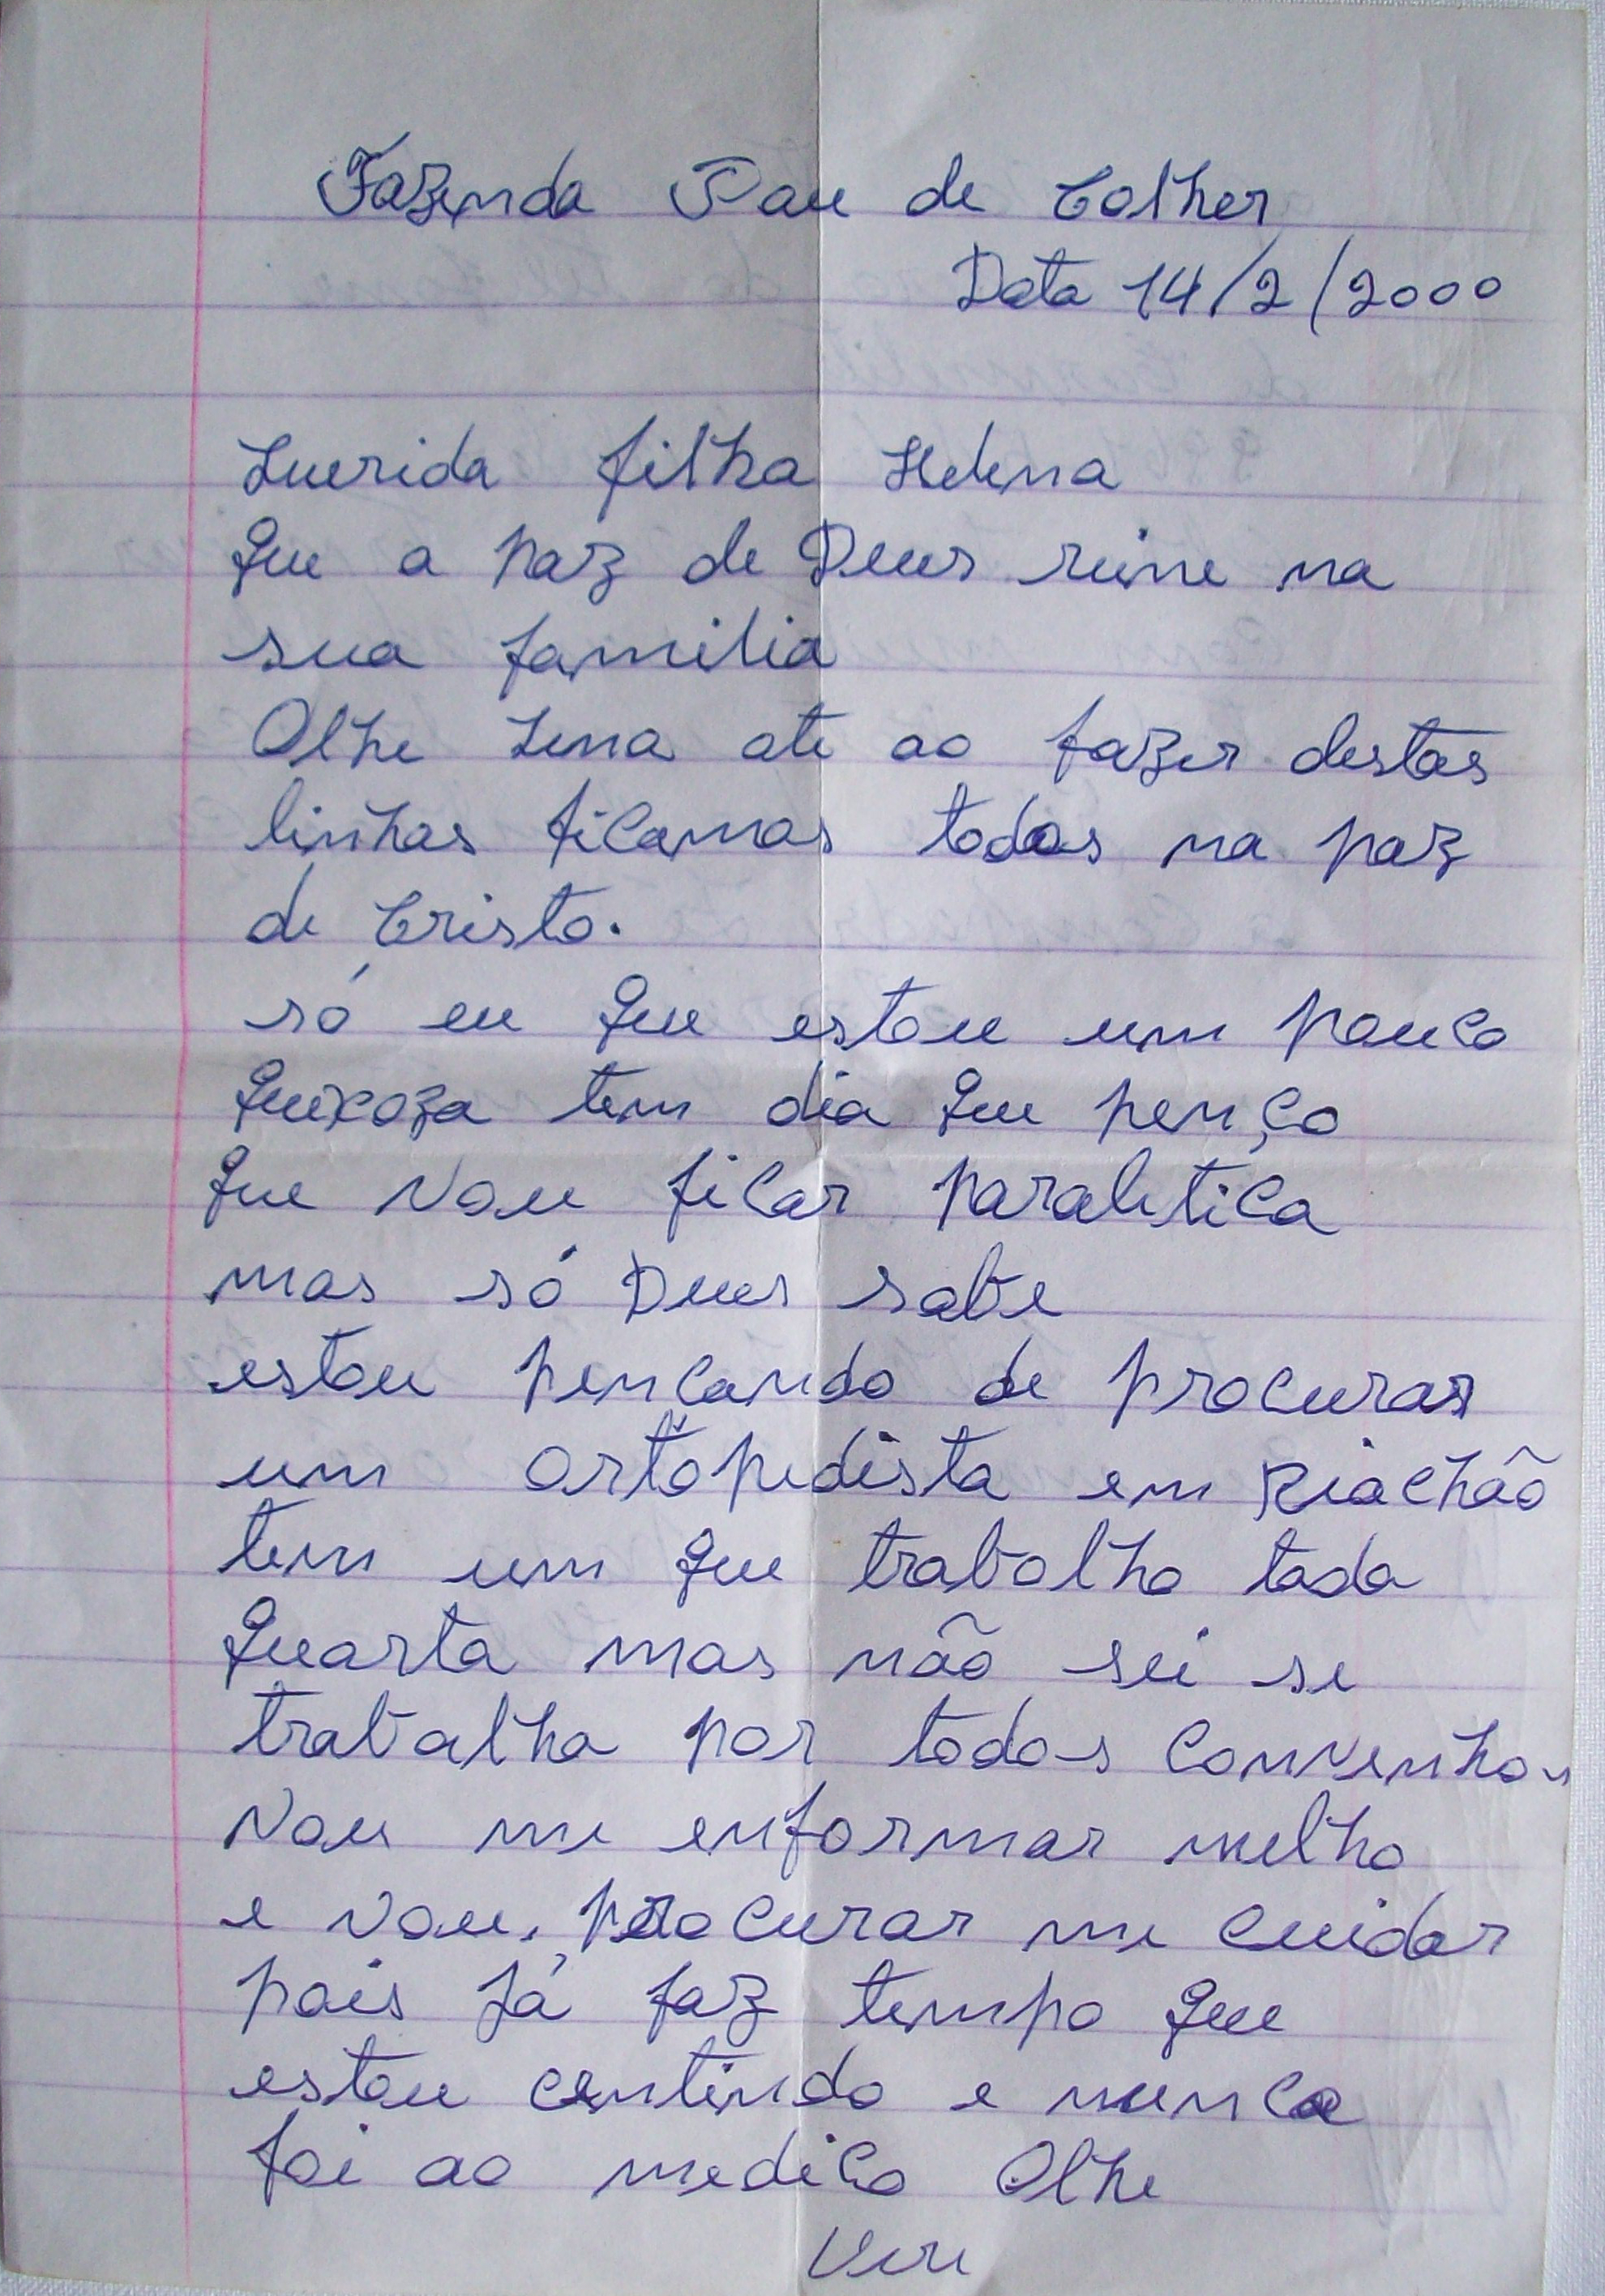 Fazenda Pau de Colher
Data 14/2/2000
Querida filha Helena
Que a paz de Deus reine na
sua familia
Olhe Lena ate ao fazer destas
linhas ficamos todos na paz
de Cristo.
só eu que estou um pouco
queixoza tem dia que penço
que vou ficar paraletica
mas só Deus sabe
estou pençando de procurar
um ortopedista em Riachão
tem um que trabalha toda
quarta mas não sei se
trabalha por todos convenhos
vou me enformar melho
e vou procurar me cuidar
pois já faz tempo que
estou centindo e nunca
foi ao medico Olhe